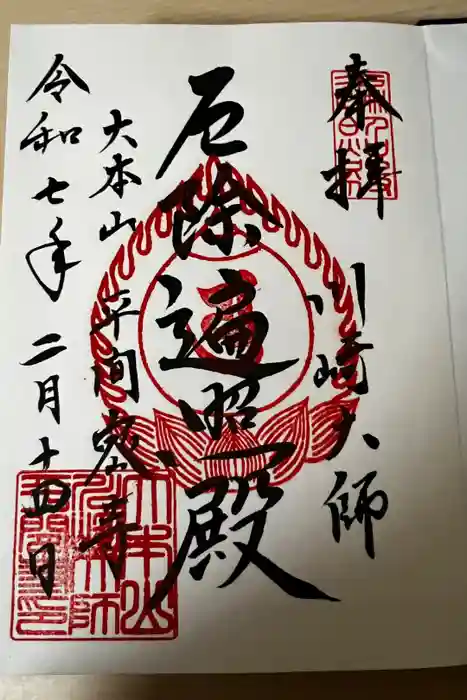 奉拝
川崎大師
厄除遍照殿
大本山
平間寺
令和七年二月十四日